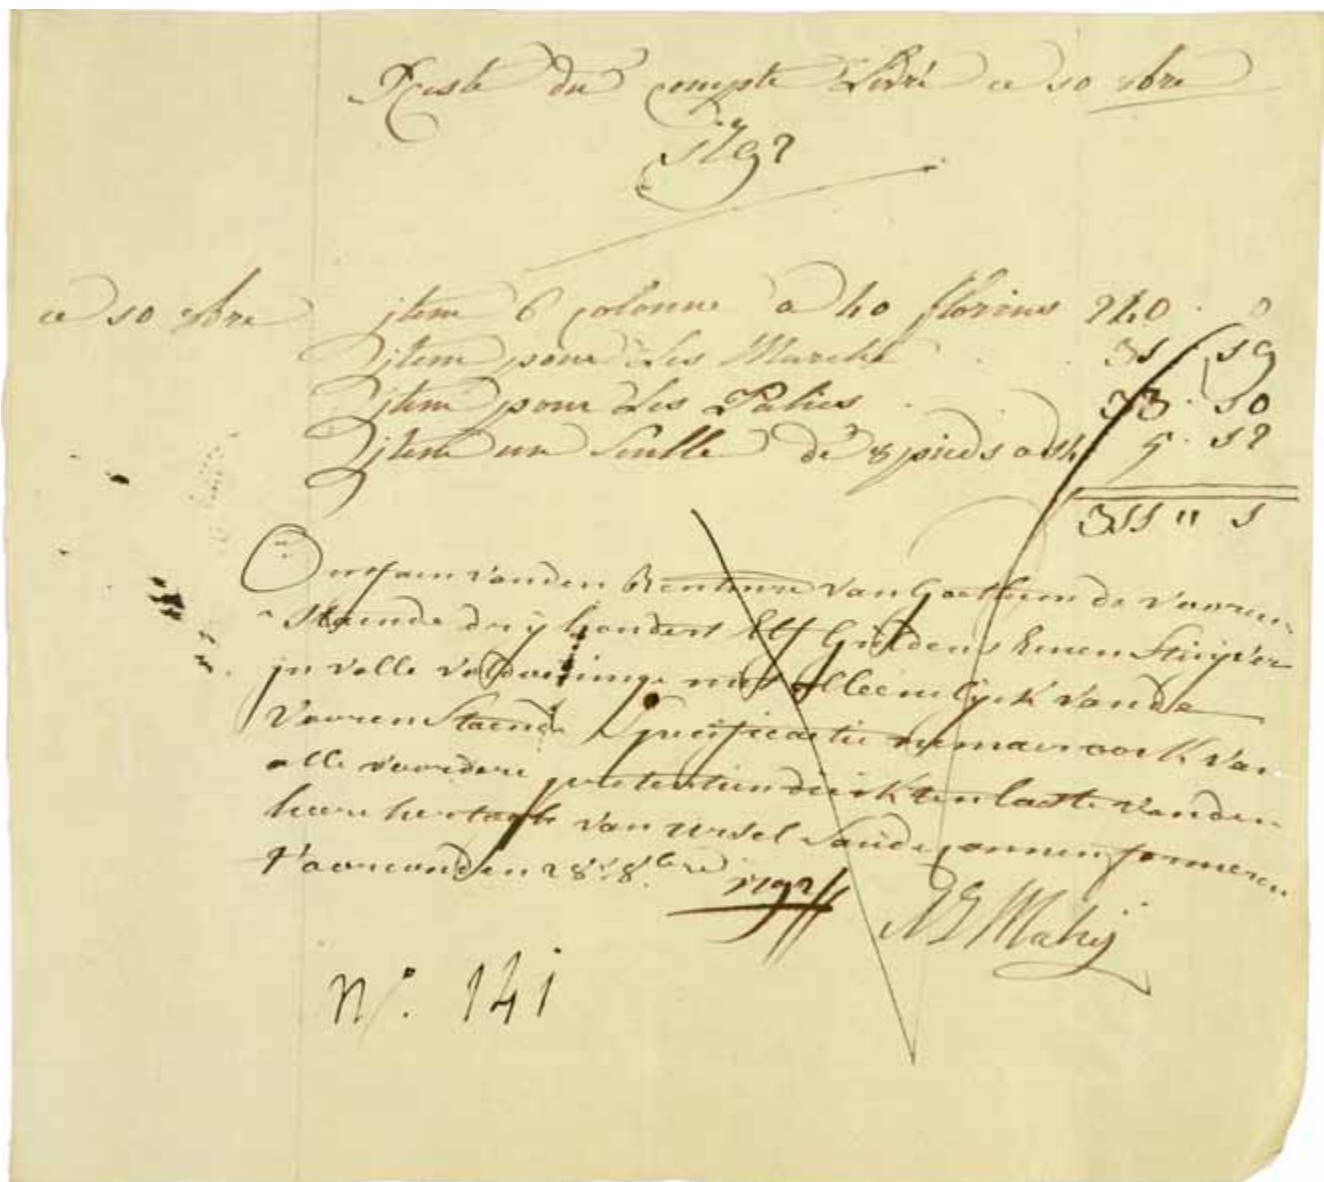 Reste du compte Livré ce 10 8bre
1792
ce 10 8bre jtem 6 colonne a 40 florins 240 · 0
jtem pour Les Marche 31 19
jtem pour Les Palies 33 · 10
jtem un Seulle de 8 pieds a 14 9 · 12
311 " 1
Ontfaen vanden Rentmre van de vooren
staende dry hondert Elf Guldens Eenen Stuyver
jn volle voldoeninge niet alleenelyck vande
vooren Staende Specificatie nemaer oock van
alle voordere pretentien die ick ten laste vanden
heere hertogh van ursel Saude connen formeren
den 28 8bre 1792 Mahy
N°. 141